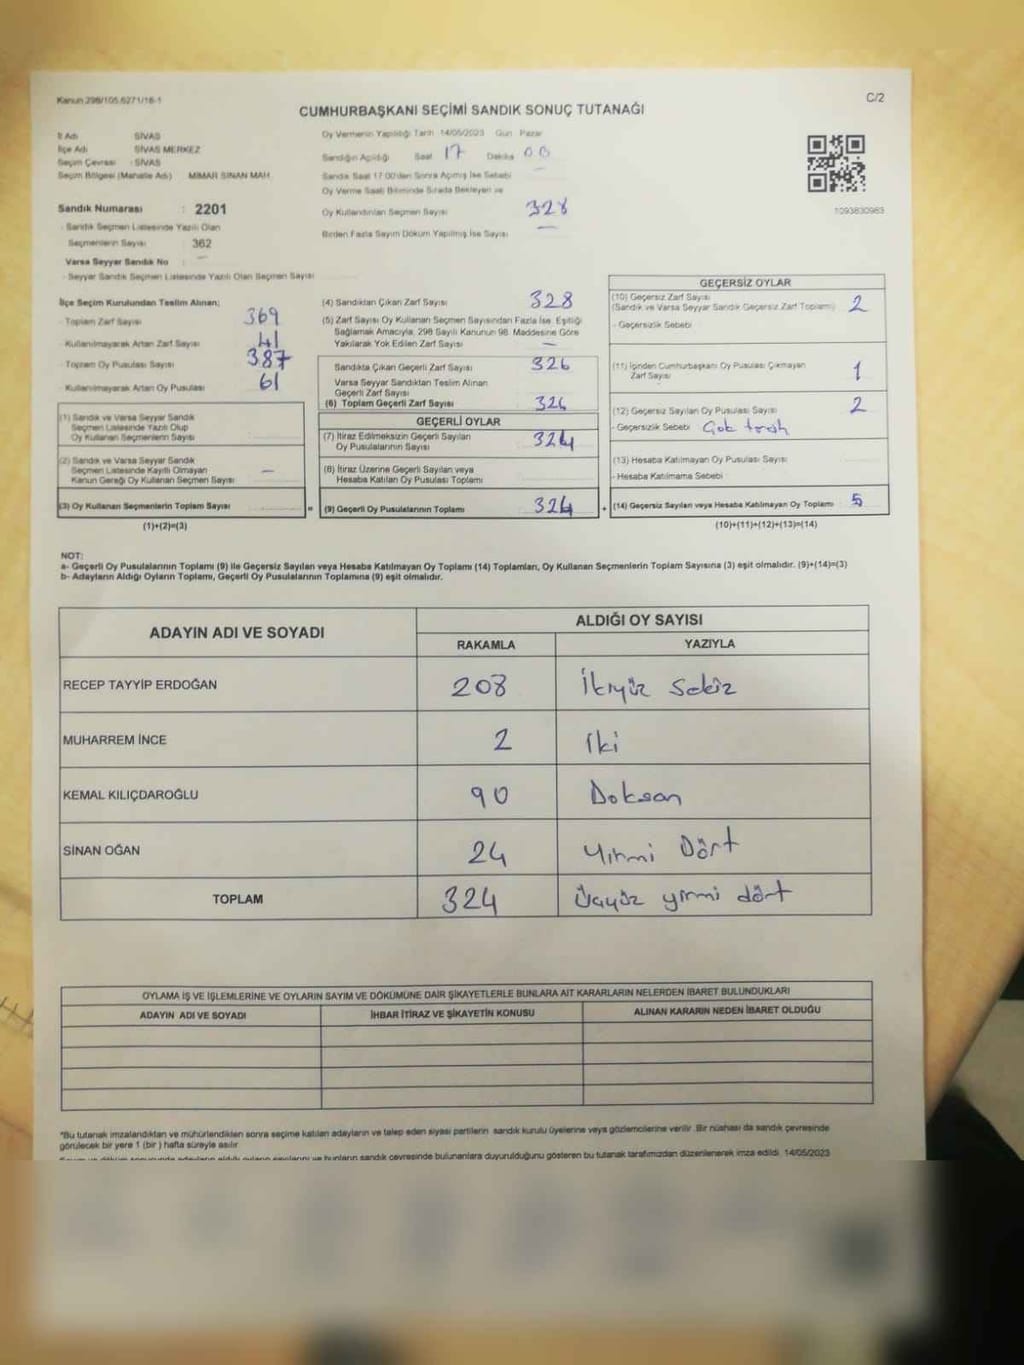 Kanun 298/105,6271/16-1
C/2
CUMHURBAŞKANI SEÇİMİ SANDIK SONUÇ TUTANAĞI
İl Adı SİVAS
İlçe Adı SİVAS MERKEZ
Seçim Çevresi : SİVAS
Seçim Bölgesi (Mahalle Adı) MİMAR SİNAN MAH.
Sandık Numarası : 2201
- Sandık Seçmen Listesinde Yazılı Olan
Seçmenlerin Sayısı : 362
Varsa Seyyar Sandık No
- Seyyar Sandık Seçmen Listesinde Yazılı Olan Seçmen Sayısı
Oy Vermenin Yapıldığı Tarih 14/05/2023 Gün Pazar
Sandığın Açıldığı Saat 17 Dakika 00
Sandık Saat 17.00'den Sonra Açılmış İse Sebebi
Oy Verme Saati Bitiminde Sırada Bekleyen ve
Oy Kullandırılan Seçmen Sayısı 328
Birden Fazla Sayım Döküm Yapılmış İse Sayısı —
1093830983
İlçe Seçim Kurulundan Teslim Alınan;
- Toplam Zarf Sayısı 369
- Kullanılmayarak Artan Zarf Sayısı 41
- Toplam Oy Pusulası Sayısı 387
- Kullanılmayarak Artan Oy Pusulası 61
(1) Sandık ve Varsa Seyyar Sandık
Seçmen Listesinde Yazılı Olup
Oy Kullanan Seçmenlerin Sayısı
(2) Sandık ve Varsa Seyyar Sandık
Seçmen Listesinde Kayıtlı Olmayan
Kanun Gereği Oy Kullanan Seçmen Sayısı —
(3) Oy Kullanan Seçmenlerin Toplam Sayısı
=
(1)+(2)=(3)
(4) Sandıktan Çıkan Zarf Sayısı 328
(5) Zarf Sayısı Oy Kullanan Seçmen Sayısından Fazla İse, Eşitliği
Sağlamak Amacıyla, 298 Sayılı Kanunun 98. Maddesine Göre
Yakılarak Yok Edilen Zarf Sayısı —
Sandıkta Çıkan Geçerli Zarf Sayısı 326
Varsa Seyyar Sandıktan Teslim Alınan
Geçerli Zarf Sayısı
(6) Toplam Geçerli Zarf Sayısı 326
GEÇERLİ OYLAR
(7) İtiraz Edilmeksizin Geçerli Sayılan
Oy Pusulalarının Sayısı 324
(8) İtiraz Üzerine Geçerli Sayılan veya
Hesaba Katılan Oy Pusulası Toplamı
(9) Geçerli Oy Pusulalarının Toplamı 324
+
GEÇERSİZ OYLAR
(10) Geçersiz Zarf Sayısı
(Sandık ve Varsa Seyyar Sandık Geçersiz Zarf Toplamı) 2
- Geçersizlik Sebebi
(11) İçinden Cumhurbaşkanı Oy Pusulası Çıkmayan
Zarf Sayısı 1
(12) Geçersiz Sayılan Oy Pusulası Sayısı 2
- Geçersizlik Sebebi
(13) Hesaba Katılmayan Oy Pusulası Sayısı
- Hesaba Katılmama Sebebi
(14) Geçersiz Sayılan veya Hesaba Katılmayan Oy Toplamı 5
(10)+(11)+(12)+(13)=(14)
NOT:
a- Geçerli Oy Pusulalarının Toplamı (9) ile Geçersiz Sayılan veya Hesaba Katılmayan Oy Toplamı (14) Toplamları, Oy Kullanan Seçmenlerin Toplam Sayısına (3) eşit olmalıdır. (9)+(14)=(3)
b- Adayların Aldığı Oyların Toplamı, Geçerli Oy Pusulalarının Toplamına (9) eşit olmalıdır.
ADAYIN ADI VE SOYADI
ALDIĞI OY SAYISI
RAKAMLA YAZIYLA
RECEP TAYYİP ERDOĞAN 208 İkiyüz Sekiz
MUHARREM İNCE 2 İki
KEMAL KILIÇDAROĞLU 90 Doksan
SİNAN OĞAN 24 Yirmi Dört
TOPLAM 324 Üçyüz yirmi dört
OYLAMA İŞ VE İŞLEMLERİNE VE OYLARIN SAYIM VE DÖKÜMÜNE DAİR ŞİKAYETLERLE BUNLARA AİT KARARLARIN NELERDEN İBARET BULUNDUKLARI
ADAYIN ADI VE SOYADI İHBAR İTİRAZ VE ŞİKAYETİN KONUSU ALINAN KARARIN NEDEN İBARET OLDUĞU
*Bu tutanak imzalandıktan ve mühürlendikten sonra seçime katılan adayların ve talep eden siyasi partilerin sandık kurulu üyelerine veya gözlemcilerine verilir. Bir nüshası da sandık çevresinde
görülecek bir yere 1 (bir) hafta süreyle asılır.
sandık çevresinde bulunanlara duyurulduğunu gösteren bu tutanak tarafımızdan düzenlenerek imza edildi. 14/05/2023